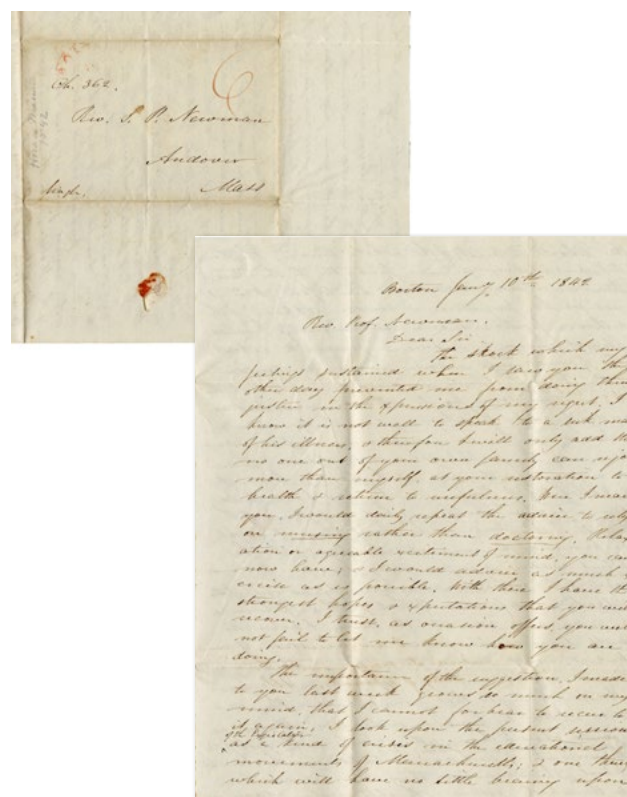 Ch. 362.
Rev. S. P. Newman
Andover
Mass
Single.
Horace Mann
1842
6
Boston Jany. 10th 1842
Rev. Prof. Newman.
Dear Sir
The shock which my
feelings sustained when I saw you the
other day prevented me from doing
justice in the expressions of my regret. I
know it is not well to speak to a sick
of his illness, & therefore I will only add
no one out of your own family can
more than myself, at your restoration to
health & return to usefulness. Were I near
you, I would daily repeat the advice to rely
on nursing rather than doctoring.
ation or agreeable excitement of mind, you
now have; & I would advise as much
ercise as is possible. With these I have the
strongest hopes & expectations that you will
recover. I trust, as occasion offers, you will
not fail to let me know how you are
doing.
The importance of the suggestion, I made
to you last week grows so much on my
mind, that I cannot forbear to recur to
it again. I look upon the present session
of the Legislature
as a kind of crisis in the educational
movements of Massachusetts; & one thing
which will have no little bearing upon